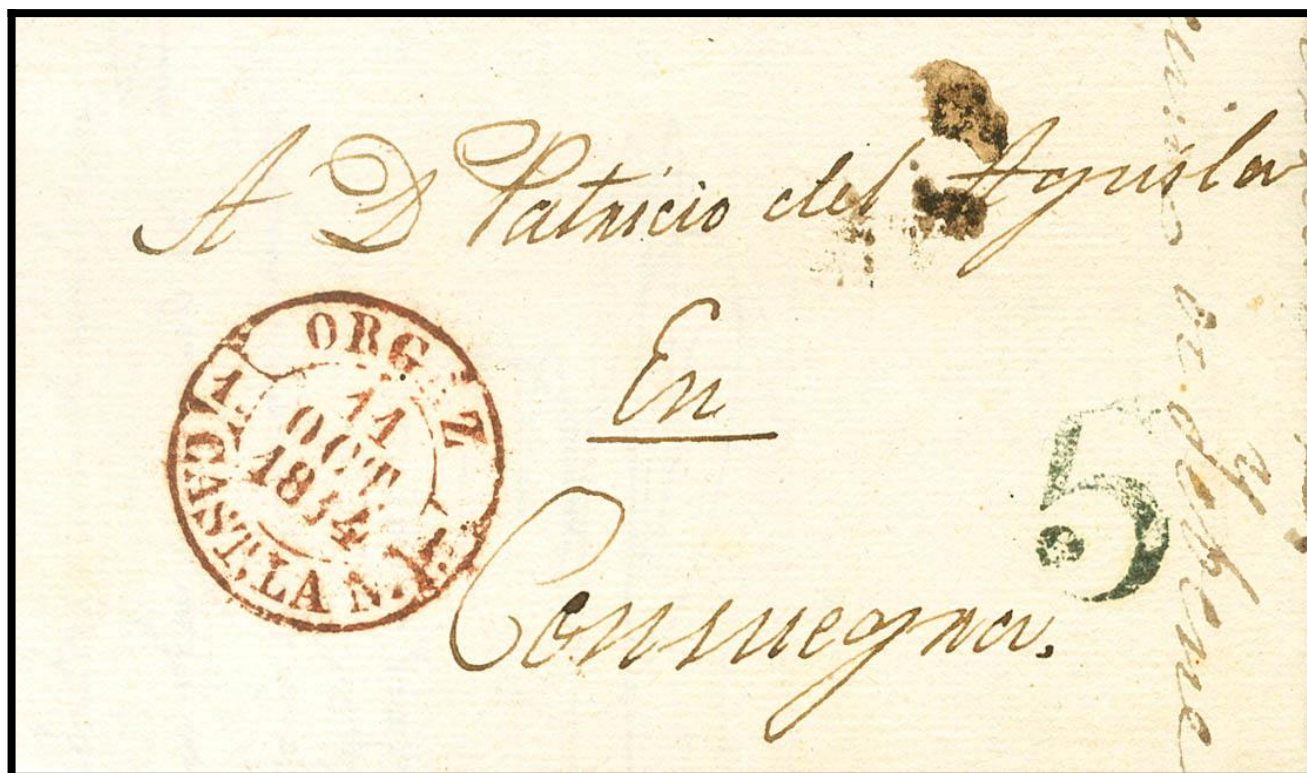 A D Patricio del Aguila
En
Consuegra.
ORGAZ
11
OCT
1854
CAST. LA N.
5